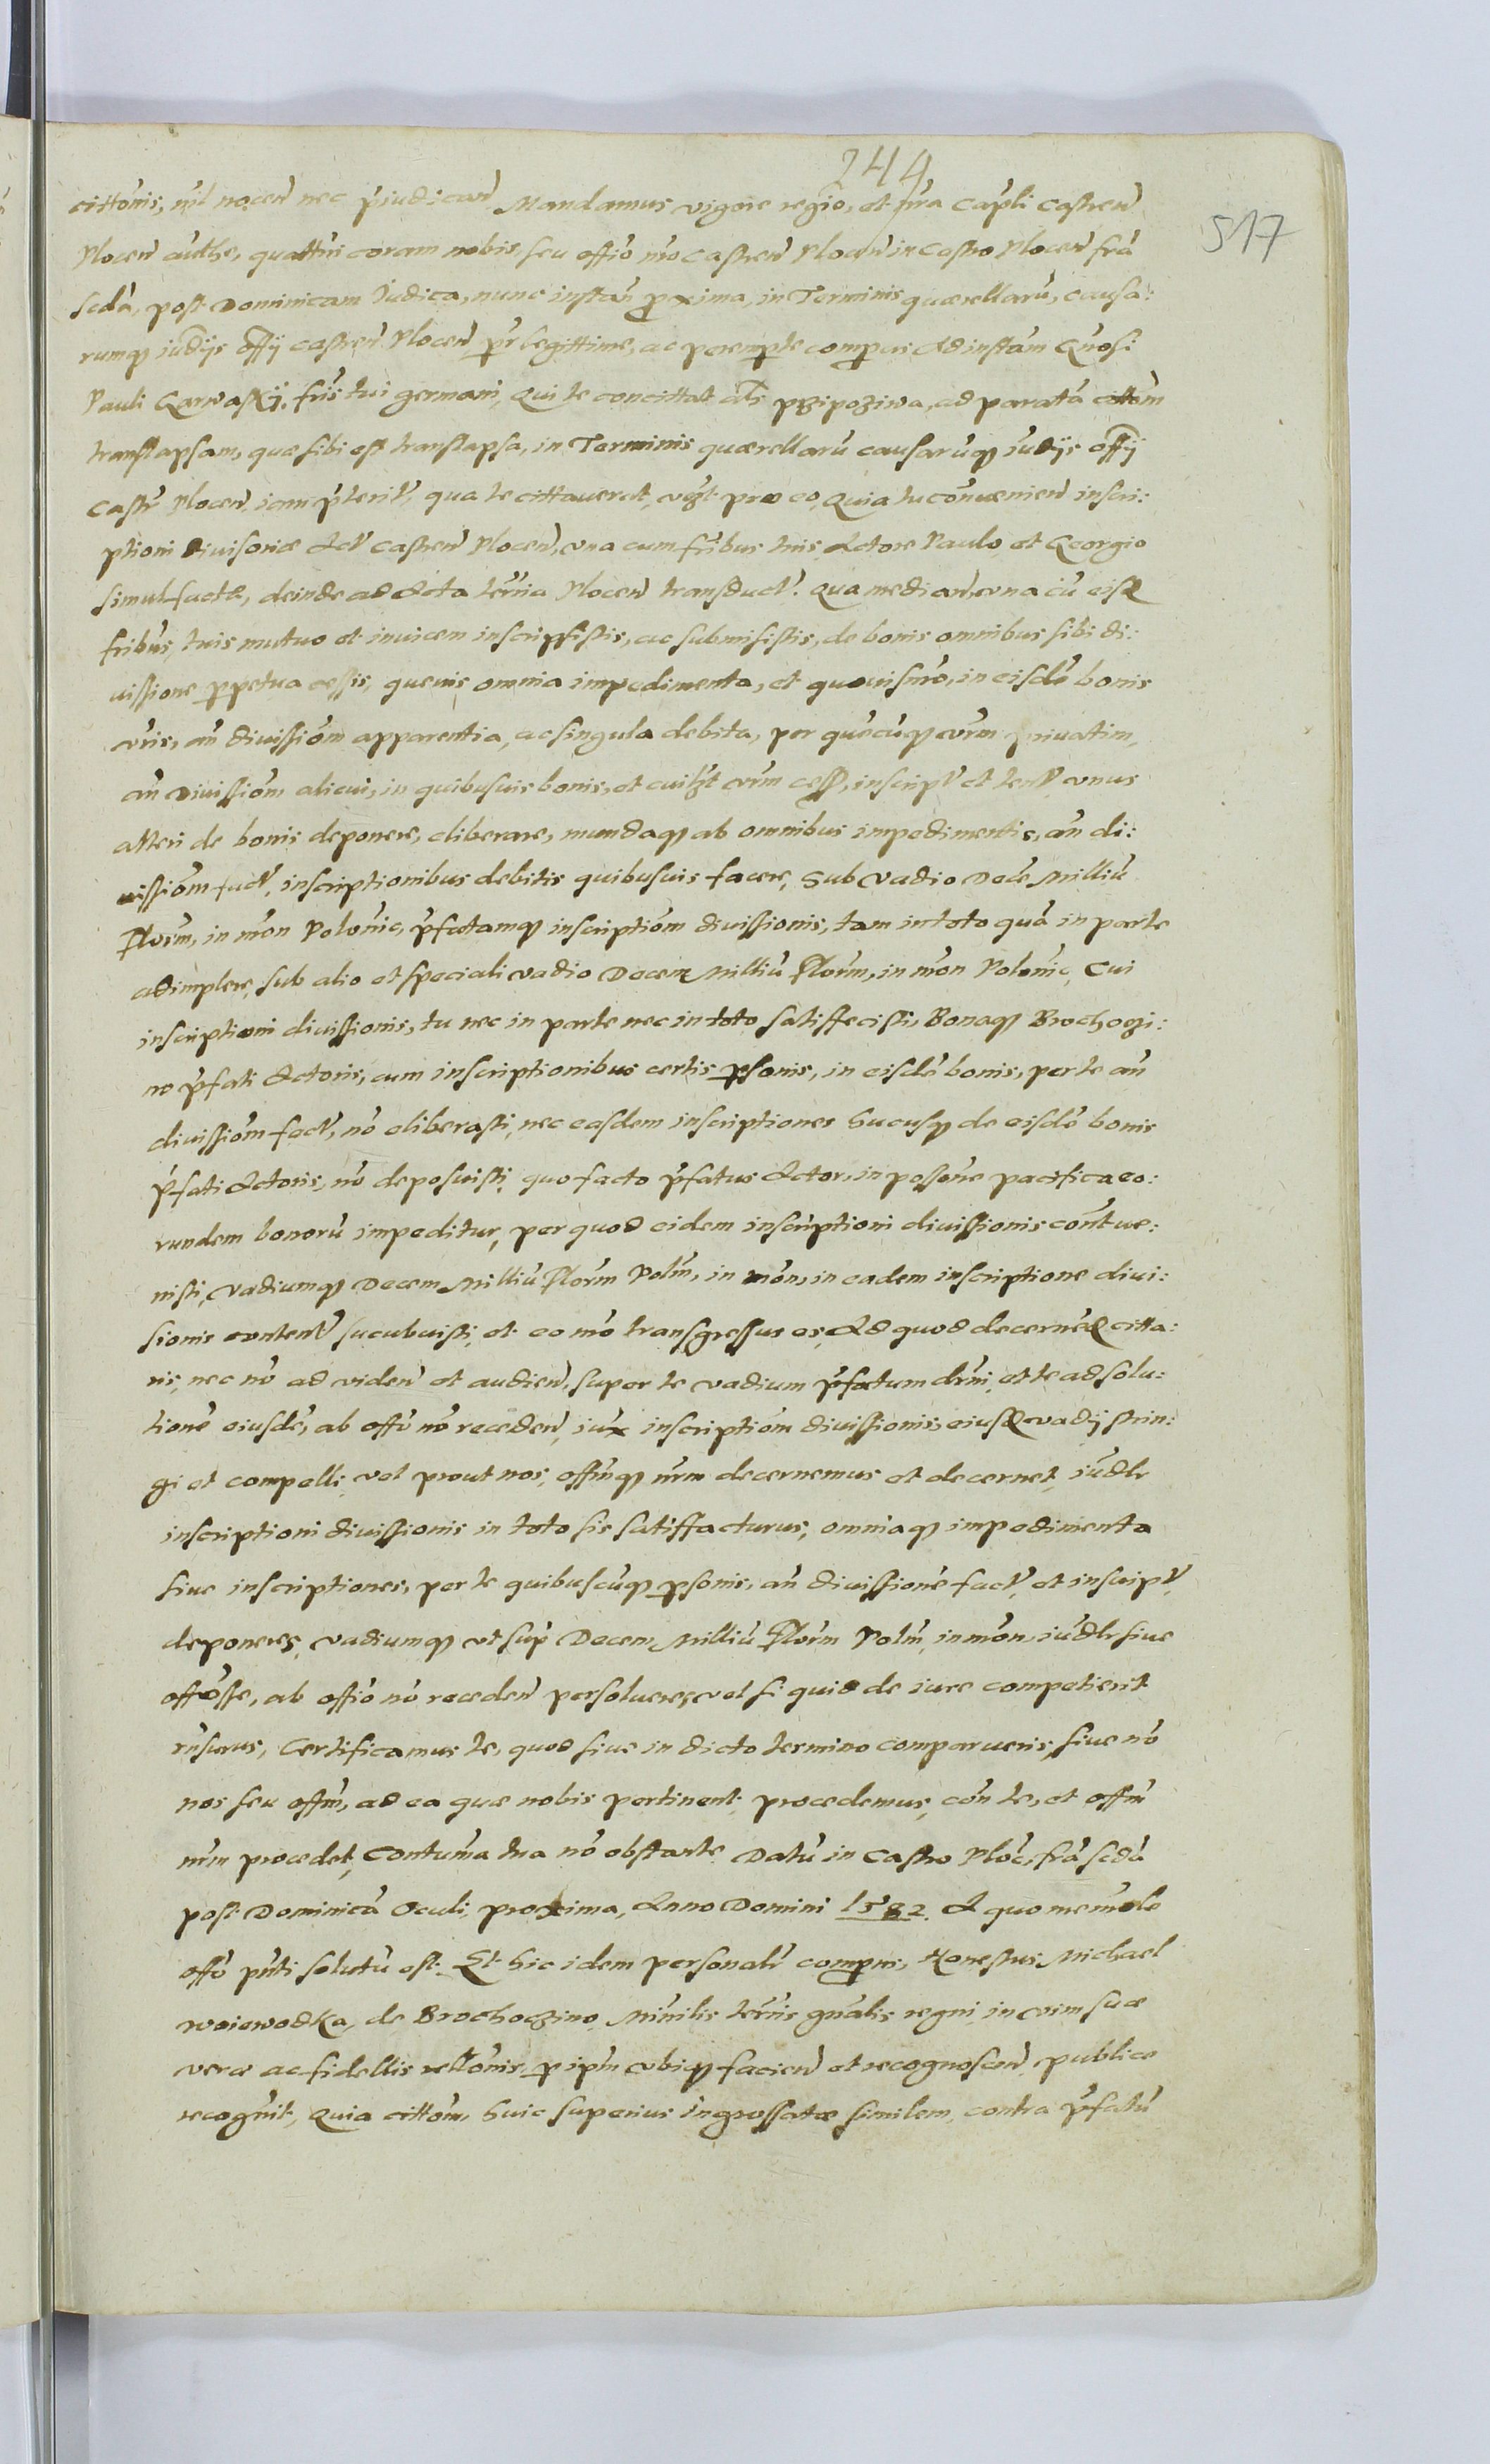 244
517
cittonis, nil nocen nec p̄iudican Mandamus vigore regio, et nr̄a capli castren
Plocen authe, quattin̄ coram nobis, seu offi͞o nr̄o castren Plocen in castro Plocen fr̄a
scda, post Dominicam Iudica, nunc instan̄ proxima, in Terminis quaerellarū, causa:
rumq̨ iudijs offy castren Plocen pr̄ legittime, ac peremptē comp̱eas Ad instan̄ Gnosi
Pauli Garwaskÿ, fr̄is tui germani, Qui te concittat als przipoziwa, ad paratā cittōm
translapsam, quae sibi est translapsa, in Terminis quaerellarū causarūq̨ iudijs offy
castr̄ Plocen iam p̄terit, qua te cittaverat, vigt prae eo, Quia tu convaenien inscri:
ptioni divisoriae Act castren Plocen, vna cum fribus tuis, Actore Paulo et Georgio
simul factae, deinde ad Acta terr̄ia Plocen transduct. Qua median, vna cū eisd
fribus tuis mutuo et invicem inscripsistis, ac submisistis, de bonis omnibus sibi di:
uissione perpetua cessis, quaeuis omnia impedimenta, et quouismō, in eisdē bonis
vris, an̄ divissiōm apparentia, ac singula debita, per quēcūq̨ vrm privattim,
an̄ Divissiōm alicui, in quibusuis bonis, et cuilzt vrm cess, inscript et tent vnus
alteri de bonis deponere, eliberare, mundaq̨ ab omnibus impedimentis, an̄ di:
uissiōm fact, inscriptionibus debitis quibusuis facere, Sub vadio Decē Milliū
Florm, in mon Polonic, p̄fatamq̨ inscriptiōm divissionis, tam in toto quā in parte
adimplere, sub alio et speciali vadio Decem Milliū Florm, in mon Polonic, Cui
inscriptioni divissionis, tu nec in parte nec in toto satisfecisti, Bonaq̨ Brochozi:
no p̄fati Actoris, cum inscriptionibus certis p̱sonis, in eisdē bonis, per te an̄
divissiōm fact, nō eliberasti, nec easdem inscriptiones hucusq̨ de eisdē bonis
p̄fati Actoris, nō deposuisti, quo facto p̄fatus Actor, in possōne pacifica eo:
rundem bonorū impeditur, per quod eidem inscriptioni divissionis contrae:
nisti, vadiumq̨ Decem Milliū Florm Polm, in mon, in eadem inscriptione diui:
sionis content sucubuisti, et eo mō transgressus es, Ad quod decernēd citta:
ris, nec nō ad viden et audien, super te vadium p̄fatum drni, et te ad solu:
tionē eiusdē, ab offō nō receden, iux inscriptiōm divissionis, eiusd vadij strin:
gi et compelli, vel prout nos, offmq̨ nrm decernemus et decernet, iudlr
inscriptioni divissionis in toto sis satisfacturus, omniaq̨ impedimenta
siue inscriptiones, per te quibuscūq̨ p̱sonis, an̄ divissionē fact, et inscript,
deponeres, vadiumq̨ vt sup̄ Decem Milliū Florm Polm, in mon, iudlr siue
offōsse, ab offiō nō receden persolueres, vel si quid de iure competierit
rn̄surus, Certificamus te, quod siue in dicto termino comparueris, siue nō
nos seu offm, ad ea quae nobis pertinent, procedemus, con te, et offm
nrm procedet, Contuma tua nō obstante Datū in Castro Ploc, fr̄a scdā
post Dominicā Oculi, proxima, Anno Domini 1582. A quo memble
offō pn̄ti solutū est. Et hic idem personalr comp̱ens, Honestus Michael
woiewodka, de Brochozino, Mīnilis terr̄is gn̄alis regni, in vim suae
verae ac fidellis rellōnis, p̱ ipm vbiq̨ facien et recognoscen publice
recognit, Quia cittōm, huic superius ingrossatae similem, contra p̄fatū